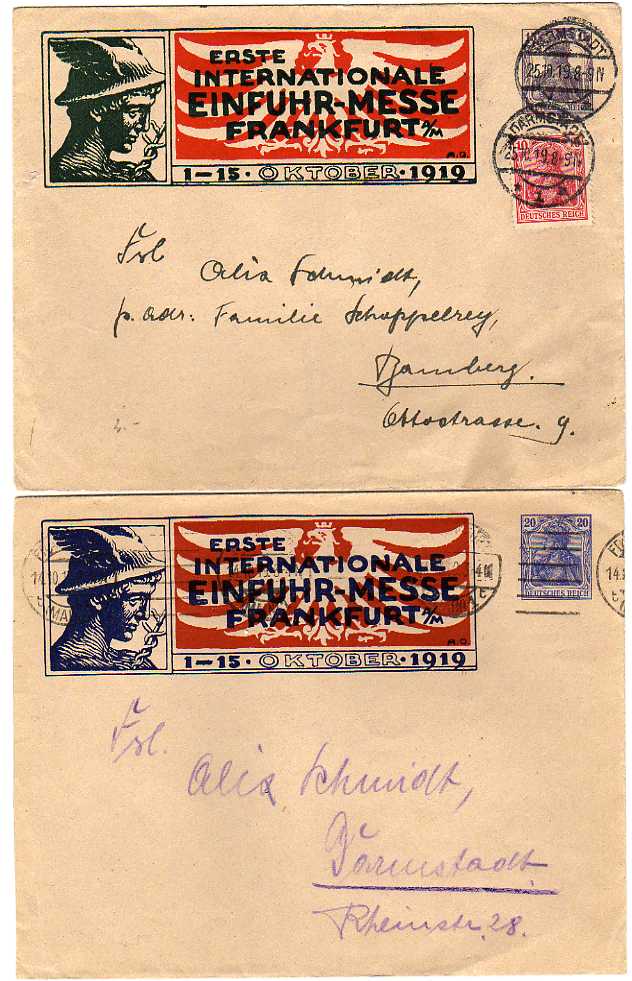 ERSTE
INTERNATIONALE
EINFUHR-MESSE
FRANKFURT A/M
A.O.
1-15. OKTOBER. 1919
DARMSTADT
25.10.19.8-9N
DARMSTADT
25.10.19.8-9N
1
10
DEUTSCHES REICH
Frl
Alix Schmidt,
p. adr: Familie Schappelrey,
Bamberg.
Ottostrasse. 9.
ERSTE
INTERNATIONALE
EINFUHR-MESSE
FRANKFURT A/M
A.O.
1-15. OKTOBER. 1919
20 20
DEUTSCHES REICH
Frl.
Alix Schmidt,
Darmstadt
Rheinstr. 28.